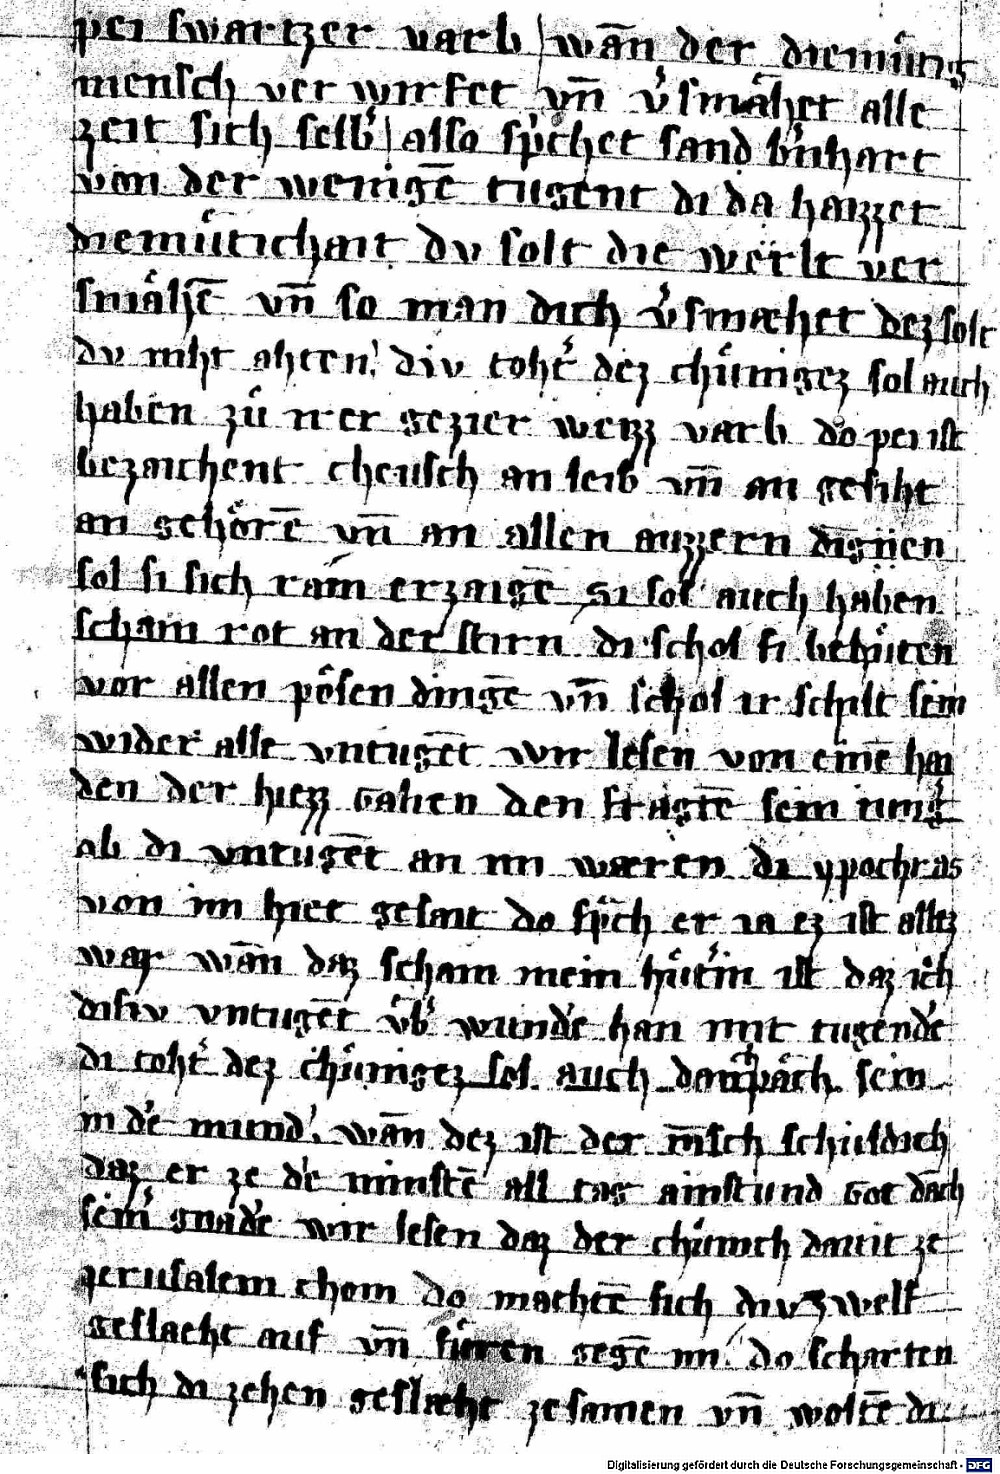 pei swartzer varb wān der diemůtig
mensch ver wirfet vn̄ v͛småhet alle
zeit sich selb͛ also sp͛chet sand b͛nhart
von der wenigē tugent di da haizzet
diemůtichait dv solt die werlt ver
småhē vn̄ so man dich v͛smæhet dez solt
dv niht ahten div toht͛ dez chůnigez sol auch
haben zů ir͛er gezier weizz varb do pei ist
bezaichent cheusch an leib vn̄ an gesiht
an gehörē vn̄ an allen auzzern dīgīen
sol si sich rain erzaigē si sol auch haben
scham rot an der stirn di schol si behůten
vor allen pôsen dingē vn̄ schol ir schilt sein
wider alle vntugēt wir lesen von einē hai
den der hiezz Galien den fragtē sein iung͛
ob di vntugēt an im wæren di ypochras
von im hiet gesait do sp͛ch er ia ez ist allez
war wān daz scham mein hůt͛in ist daz ich
disiv vntugēt v̊b͛ wund͛e han mit tugend͛e
di toht͛ dez chůnigez sol auch danchpåch sein
in d͛e mund wān dez ist der m̄sch schuldich
daz er ze d͛e minstē all tag ainstund Got dāch
sein͛ gnad͛e wir lesen daz der chůnich dauit ze
perusalem chom do machtē sich div zwelf
geslacht auf vn̄ fůren gegē im do scharten
sich di zehen geslæht zesamen vn̄ woltē di
Digitalisierung gefördert durch die Deutsche Forschungsgemeinschaft - DFG